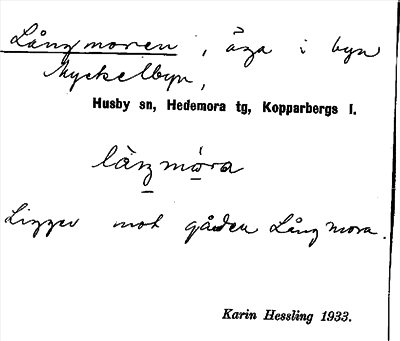 Långmoren, äga i byn
Myckelbyn,
Husby sn, Hedemora tg, Kopparbergs l.
làŋmóra
Ligger mot gården Långmora.
Karin Hessling 1933.